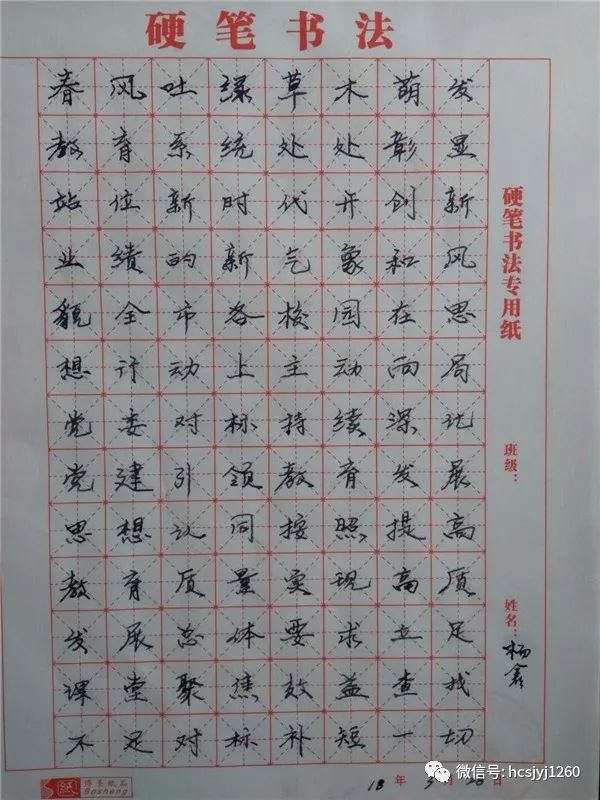 硬笔书法
春风吐绿草木萌发
教育系统处处彰显
站位新时代开创新
业绩的新气象和风
貌全市各校园在思
想计动上主动向局
党委对标持续深化
党建引领教育发展
思想认同按照提高
教育质量实现高质
发展总体要求立足
课堂聚焦效益查找
不足对标补短一切
硬笔书法专用纸
班级：
姓名：杨鑫
博圣纸品
Bosheng
18年3月20日
微信号: hcsjyj1260